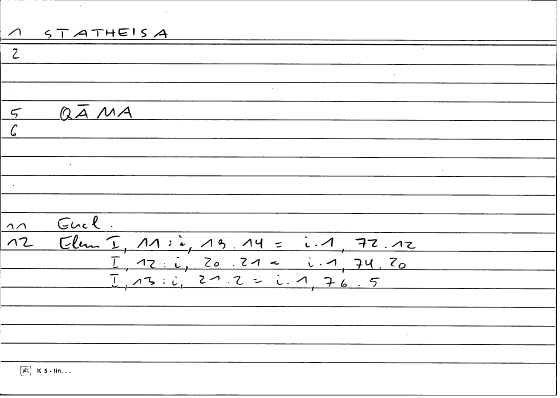 1 STATHEISA
2
5 QĀMA
6
11 Eucl.
12 Elem I, 11 : i, 19.14 = i.1, 72.12
I, 12 : i, 20.21 = i.1, 74.20
I, 13 : i, 21.2 = i.1, 76.5
K 5 - lin...